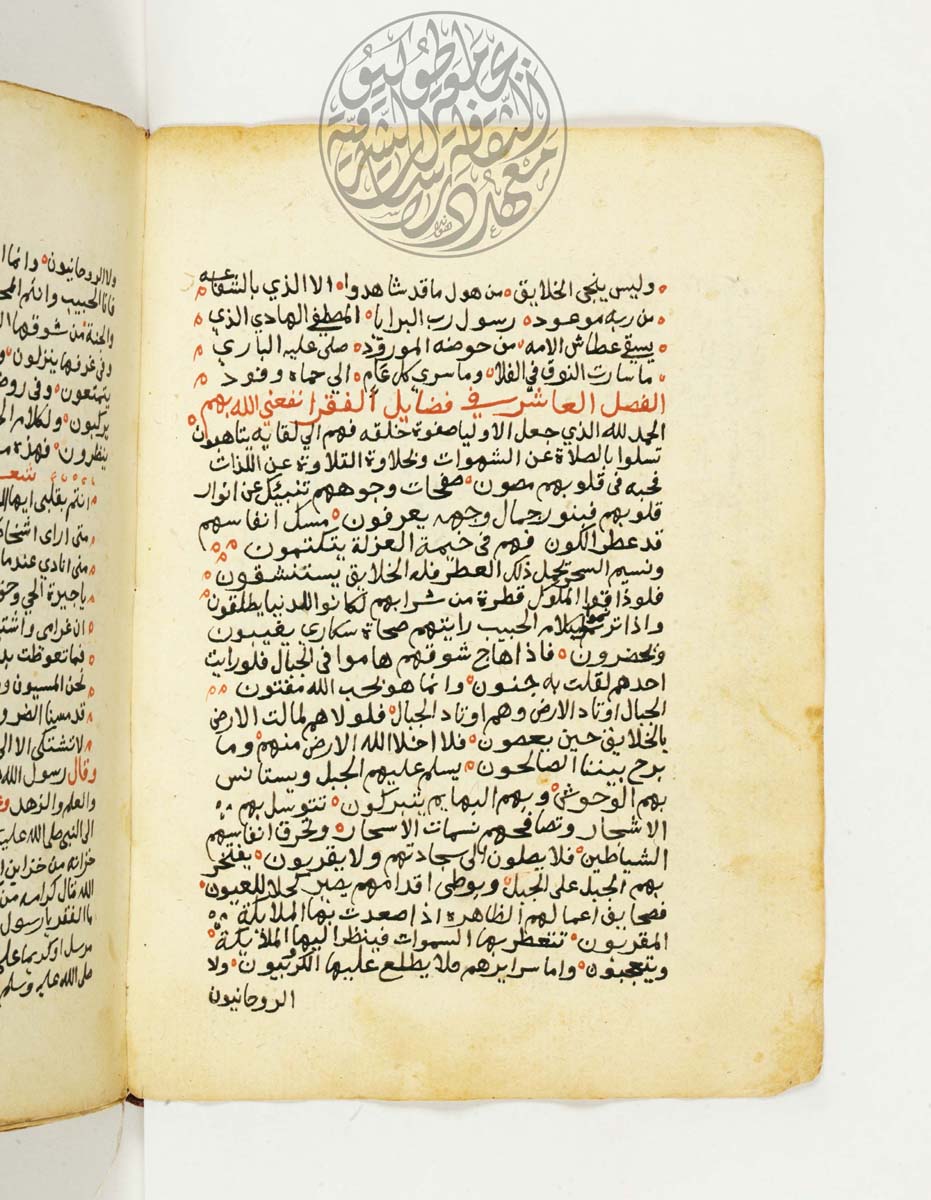 جامعة طوكيو
معهد دراسات الثقافة الشرقية
وليس ينجي الخلايق من هول ما قد شاهدوا الا الذي بالشفاعه
من ربه موعود رسول رب البرايا المصطفي الهادي الذي
يسقي عطاش الامه من حوضه المورود صلى عليه الباري
ما سارت النوق في الفلا وما سري كل عام الي حماه وفود
الفصل العاشر في فضايل الفقرا نفعني الله بهم
الحمد لله الذي جعل الاوليا صفوة خلقه فهم الي لقايه يتاهبون
تسلوا بالصلاة عن الشهوات وبحلاوة التلاوة عن اللذات
فحبه في قلوبهم مصون صفحات وجوههم تنبيك عن انوار
قلوبهم فبنور جمال وجهه يعرفون مسك انفاسهم
قد عطر الكون فهم في خيمة العزلة يتكتمون
ونسيم السحر يحمل ذلك العطر فله الخلايق يستنشقون
فلو ذاقوا الملوك قطرة من شرابهم لكانوا للدنيا يطلقون
واذا ترنموا بكلام الحبيب رايتهم صحاة سكاري يغيبون
ويحضرون فاذا هاج شوقهم هاموا في الجبال فلو رايت
احدهم لقلت به جنون وانما هو بحب الله مفتون
الجبال اوتاد الارض وهم اوتاد الجبال فلولاهم لمالت الارض
بالخلايق حين يعصون فلا اخلا الله الارض منهم وما
برح بيننا الصالحون يسلم عليهم الجبل ويستانس
بهم الوحوش وبهم البهايم يتبركون تتوسل بهم
الاشجار وتصافحهم نسمات الاسحار وتحرق انفاسهم
الشياطين فلا يصلون الى سجادتهم ولا يقربون يفتخر
بهم الجبل على الجبل وبوطي اقدامهم يصير كحلا للعيون
فصحايف اعمالهم الظاهره اذا صعدت بها الملايكة
المقربون تتعطر بها السموات فينظر اليها الملايكة
ويتعجبون واما سرايرهم فلا يطلع عليها الكروبيون ولا
الروحانيون
ولا الروحانيون وانما
فانا الحبيب وانتم
والجنة من شوقها
وفي غرفها ينزلون
يتمتعون وفي
يركبون ولكلام
ينظرون فهذه
شعر
انتم بقلبي ايها
متى اراى
متى انادي عندما
يا جيرة الحي
ان غرامي
فما تعوظت
نحن المسيون
قد مسنا الضر
لا تشتكى الا الى
وقال رسول الله
والعلم والزهد
الى النبي صلى الله عليه
خزانه من خزاين
الله قال كرامه من
ما الفقر يا رسول
مرسل او كريما على
صلى الله عليه وسلم